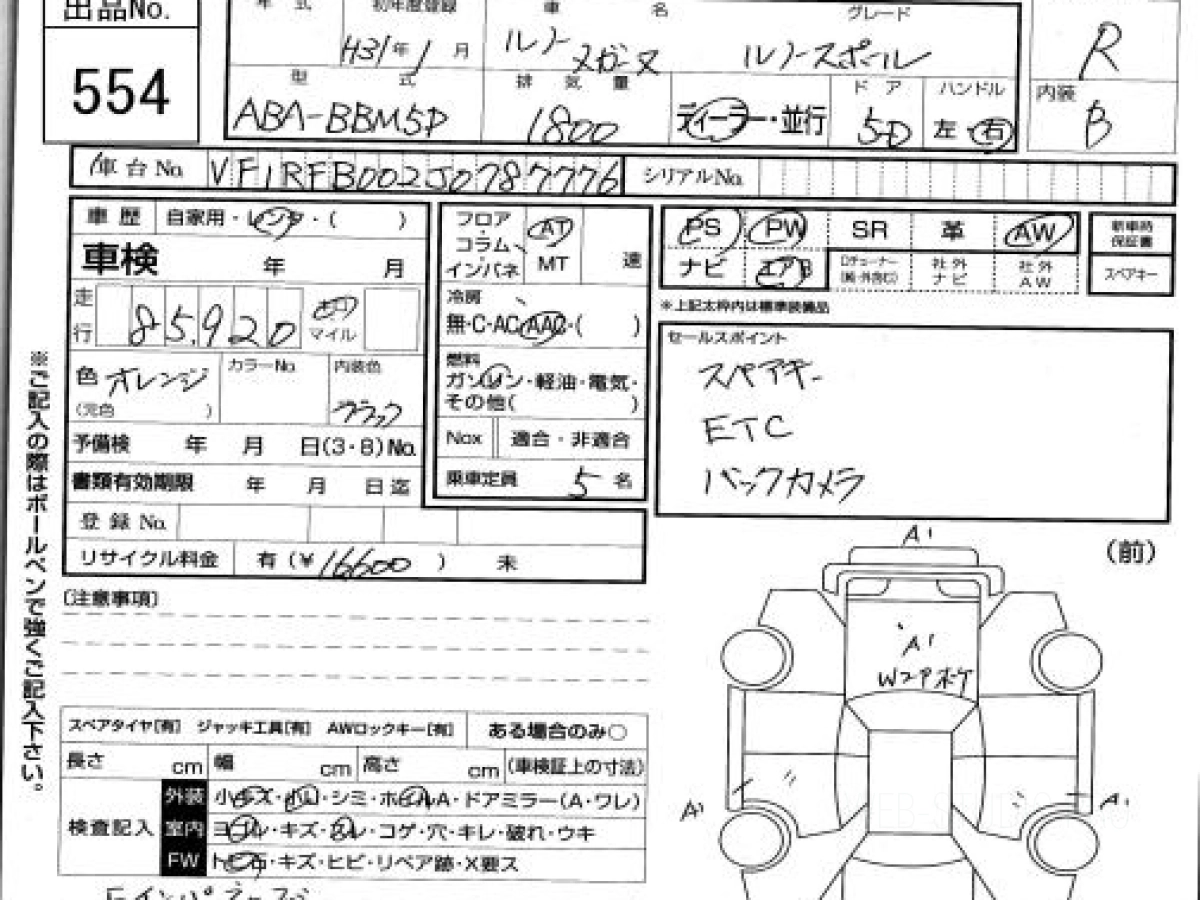 出品No.
554
年 式 初年度登録 車 名 グレード
H31年1月 ルノー メガーヌ ルノースポール R
型 式 排 気 量 ドア ハンドル 内装
ABA-BBM5P 1800 ディーラー・並行 5D 左 右 B
車台No. VF1RFB002J0787776 シリアルNo.
車歴 自家用・レンタ・( )
車検 年 月
走行 85,920 キロ マイル
色 オレンジ カラーNo. 内装色 ブラック
(元色 )
予備検 年 月 日(3・8)No.
書類有効期限 年 月 日迄
登録No.
リサイクル料金 有(¥16600 ) 未
フロア・コラム・インパネ AT MT 速
冷房
無・C・AC・AAC・( )
燃料
ガソリン・軽油・電気・
その他( )
Nox 適合・非適合
乗車定員 5名
PS PW SR 革 AW
ナビ エアB 社外ナビ 社外AW
新車時保証書
スペアキー
※上記太枠内は標準装備品
セールスポイント
スペアキー
ETC
バックカメラ
(前)
A1
A1
Wコアホケ
A1
A1
[注意事項]
スペアタイヤ[有] ジャッキ工具[有] AWロックキー[有] ある場合のみ○
長さ cm 幅 cm 高さ cm (車検証上の寸法)
検査記入
外装 小キズ・小凹・シミ・ホイールA・ドアミラー(A・ワレ)
室内 ヨゴレ・キズ・スレ・コゲ・穴・キレ・破れ・ウキ
FW トビ石・キズ・ヒビ・リペア跡・X要ス
※ご記入の際はボールペンで強くご記入下さい。